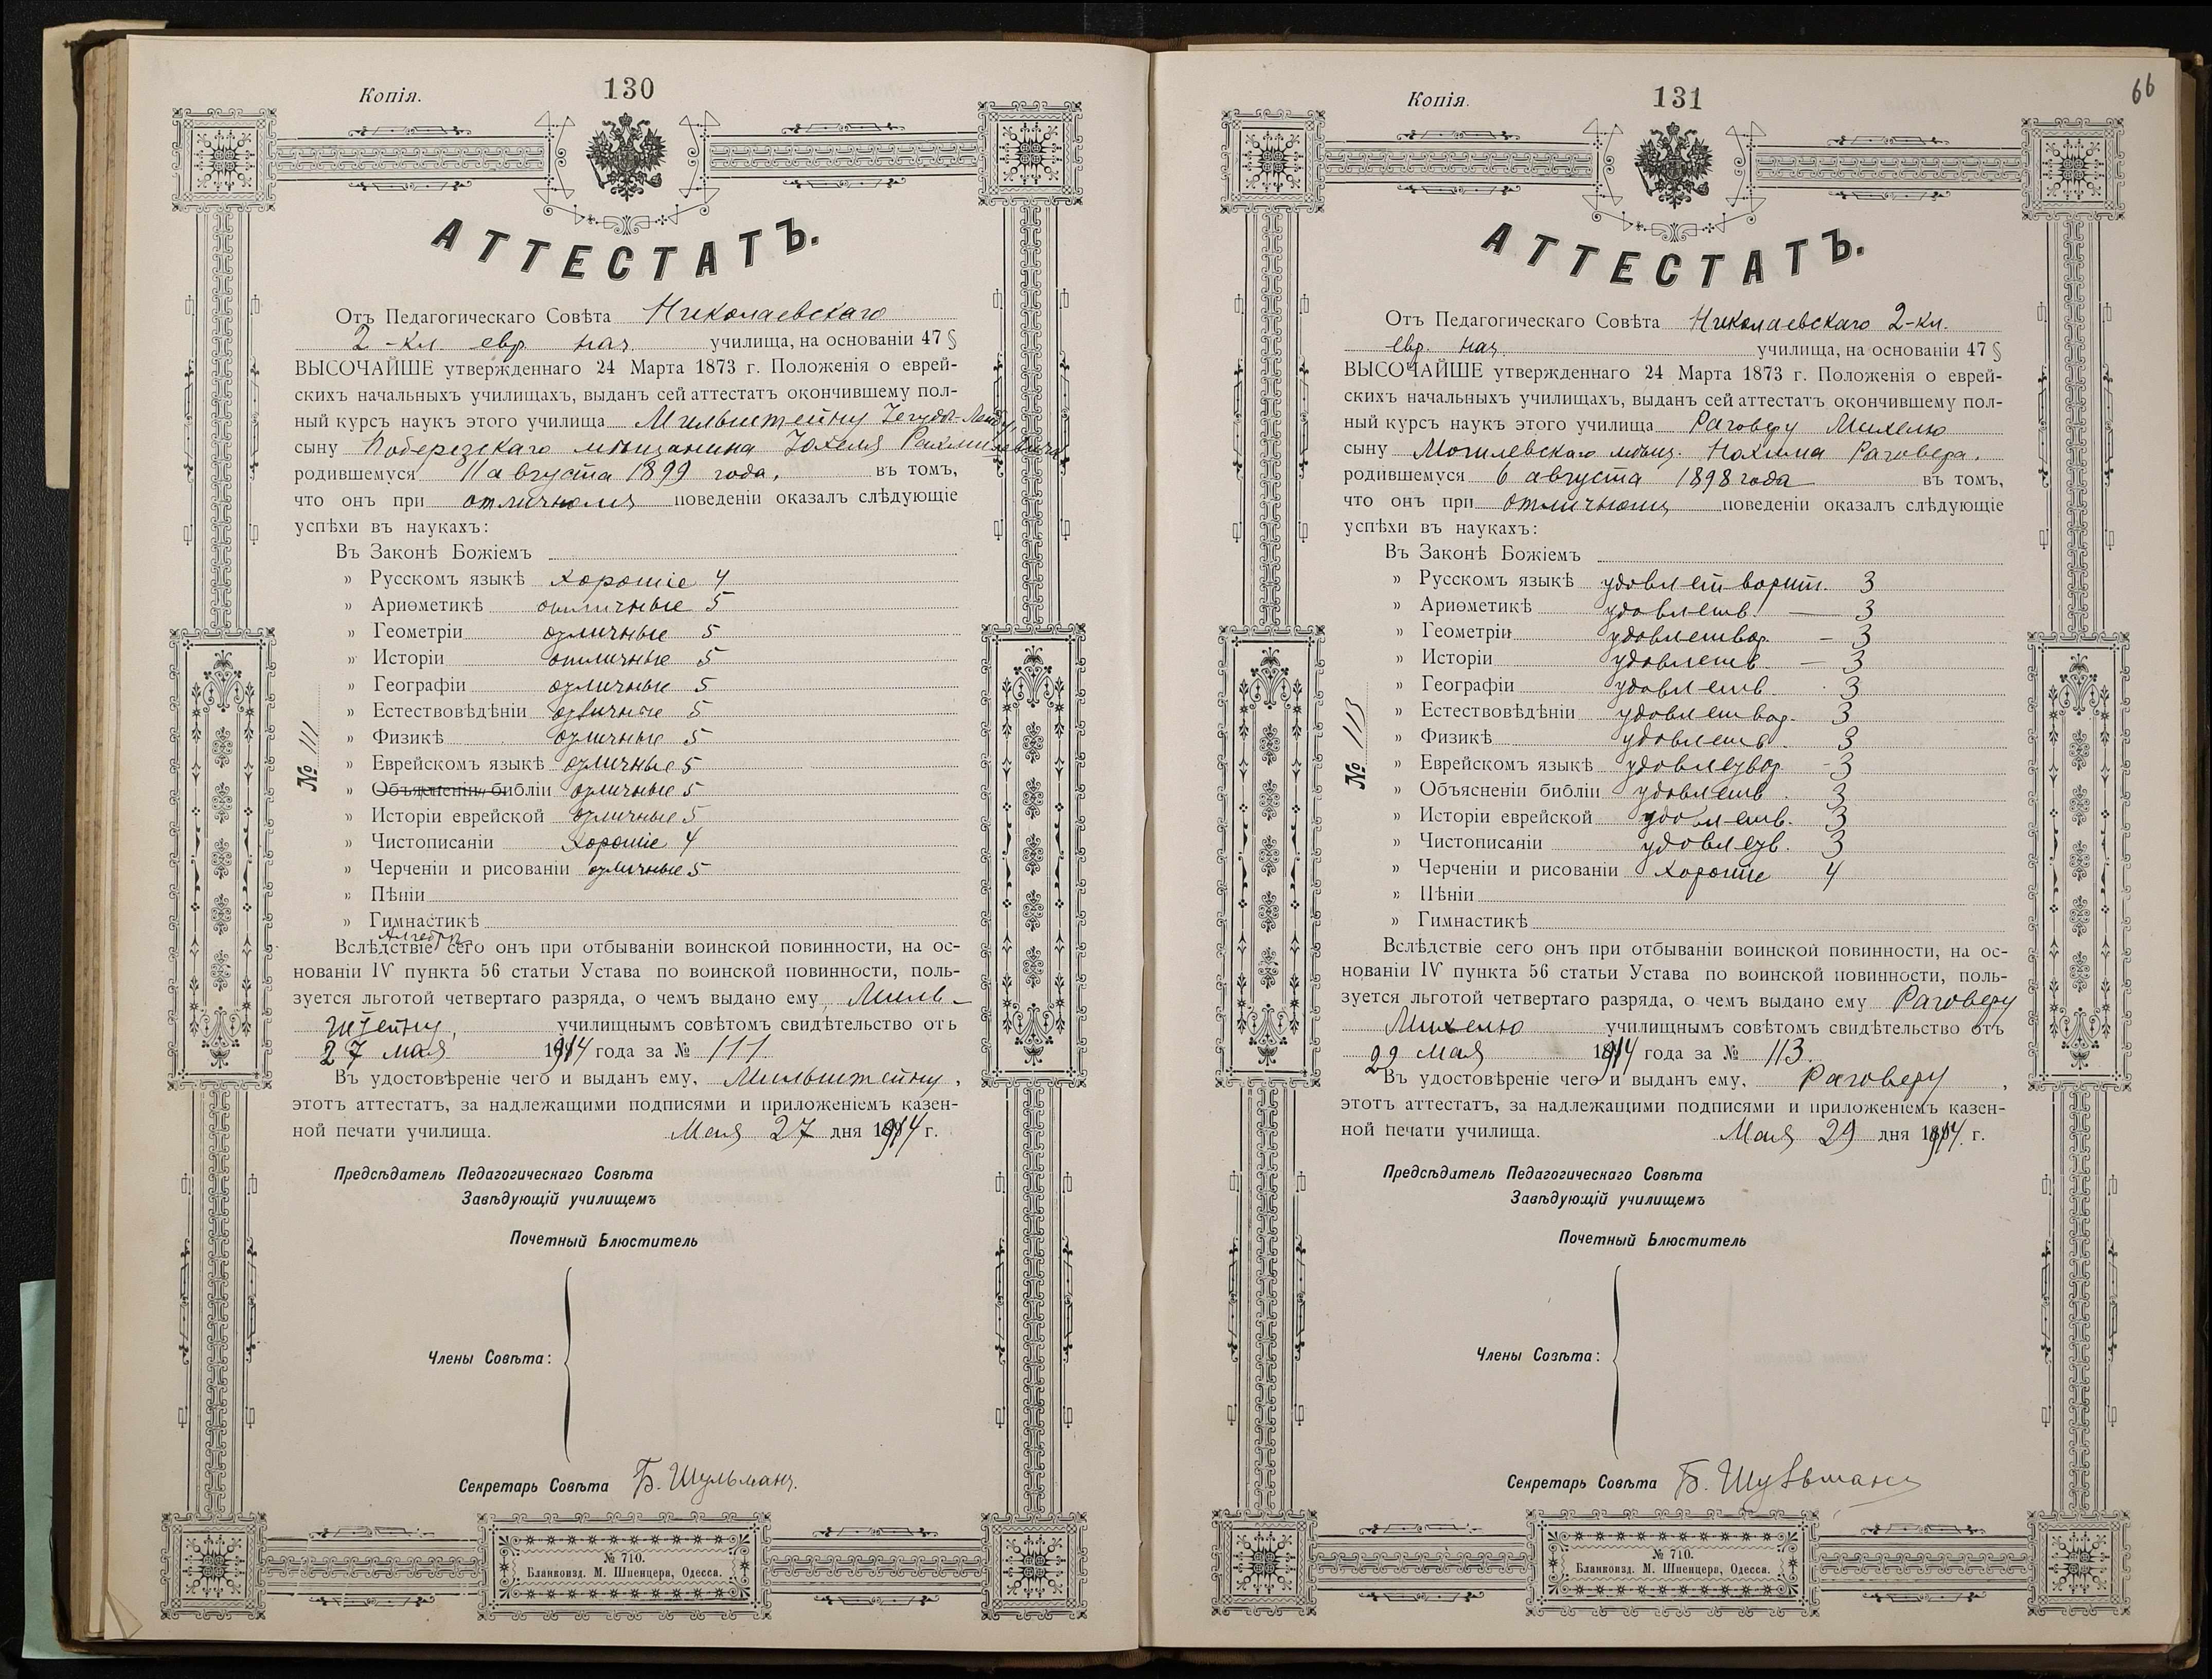 Копія.
130
АТТЕСТАТЪ.
Отъ Педагогическаго Совѣта Николаевскаго
2-кл. евр. нач. училища, на основаніи 47 §
ВЫСОЧАЙШЕ утвержденнаго 24 Марта 1873 г. Положенія о еврей-
скихъ начальныхъ училищахъ, выданъ сей аттестатъ окончившему пол-
ный курсъ наукъ этого училища Мильштейну
сыну мѣщанина
родившемуся 11 августа 1899 года. въ томъ,
что онъ при отличномъ поведеніи оказалъ слѣдующіе
успѣхи въ наукахъ:
Въ Законѣ Божіемъ
» Русскомъ языкѣ хорошіе 4
» Ариѳметикѣ отличные 5
» Геометріи отличные 5
» Исторіи отличные 5
» Географіи отличные 5
» Естествовѣдѣніи отличные 5
» Физикѣ отличные 5
» Еврейскомъ языкѣ отличные 5
» Объясненіи библіи отличные 5
» Исторіи еврейской отличные 5
» Чистописаніи хорошіе 4
» Черченіи и рисованіи отличные 5
» Пѣніи
» Гимнастикѣ
№ 111
Вслѣдствіе сего онъ при отбываніи воинской повинности, на ос-
нованіи IV пункта 56 статьи Устава по воинской повинности, поль-
зуется льготой четвертаго разряда, о чемъ выдано ему Миль-
штейну, училищнымъ совѣтомъ свидѣтельство отъ
27 мая 1914 года за № 111
Въ удостовѣреніе чего и выданъ ему, Мильштейну,
этотъ аттестатъ, за надлежащими подписями и приложеніемъ казен-
ной печати училища. Мая 27 дня 1914 г.
Предсѣдатель Педагогическаго Совѣта
Завѣдующій училищемъ
Почетный Блюститель
Члены Совѣта:
Секретарь Совѣта Б. Шульманъ.
№ 710.
Бланкоизд. М. Шпенцера, Одесса.
Копія.
131
66
АТТЕСТАТЪ.
Отъ Педагогическаго Совѣта Николаевскаго 2-кл.
евр. нач. училища, на основаніи 47 §
ВЫСОЧАЙШЕ утвержденнаго 24 Марта 1873 г. Положенія о еврей-
скихъ начальныхъ училищахъ, выданъ сей аттестатъ окончившему пол-
ный курсъ наукъ этого училища Раговеру Михелю
сыну Могилевскаго мѣщ. Нохима Раговера.
родившемуся 6 августа 1898 года въ томъ,
что онъ при отличномъ поведеніи оказалъ слѣдующіе
успѣхи въ наукахъ:
Въ Законѣ Божіемъ
» Русскомъ языкѣ удовлетворит. 3
» Ариѳметикѣ удовлетв. — 3
» Геометріи удовлетвор. — 3
» Исторіи удовлетв. — 3
» Географіи удовлетв. 3
» Естествовѣдѣніи удовлетвор. 3
» Физикѣ удовлетв. 3
» Еврейскомъ языкѣ удовлетвор - 3
» Объясненіи библіи удовлетв. 3
» Исторіи еврейской удовлетв. 3
» Чистописаніи удовлетв. 3
» Черченіи и рисованіи хорошіе 4
» Пѣніи
» Гимнастикѣ
№ 113
Вслѣдствіе сего онъ при отбываніи воинской повинности, на ос-
нованіи IV пункта 56 статьи Устава по воинской повинности, поль-
зуется льготой четвертаго разряда, о чемъ выдано ему Раговеру
Михелю училищнымъ совѣтомъ свидѣтельство отъ
29 мая 1914 года за № 113.
Въ удостовѣреніе чего и выданъ ему, Раговеру,
этотъ аттестатъ, за надлежащими подписями и приложеніемъ казен-
ной печати училища. Мая 29 дня 1914 г.
Предсѣдатель Педагогическаго Совѣта
Завѣдующій училищемъ
Почетный Блюститель
Члены Совѣта:
Секретарь Совѣта Б. Шульманъ
№ 710.
Бланкоизд. М. Шпенцера, Одесса.